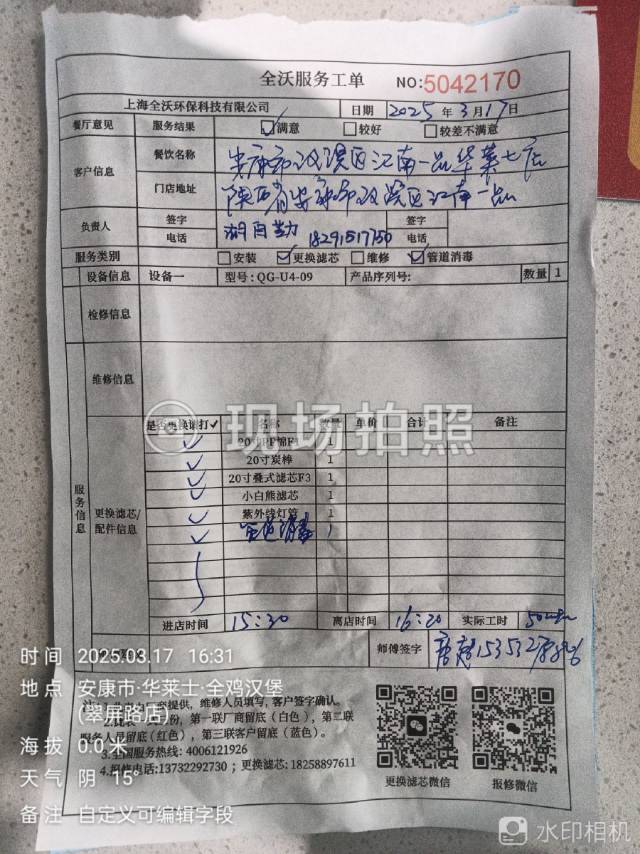 全沃服务工单 NO:5042170
上海全沃环保科技有限公司 日期 2025年3月17日
餐厅意见 服务结果 ☑满意 □较好 □较差不满意
客户信息 餐饮名称 安康市汉滨区江南一品华莱士店
门店地址 陕西省安康市汉滨区江南一品
负责人 签字 签字
电话 18291517750 电话
服务类别 □安装 ☑更换滤芯 □维修 ☑管道消毒
设备信息 设备一 型号:QG-U4-09 产品序列号: 数量 1
检修信息
维修信息
服务信息 更换滤芯/配件信息
是否更换请打✓ 名称 数量 单价 合计 备注
✓ 20寸PP棉F1 1
✓ 20寸炭棒 1
✓ 20寸叠式滤芯F3 1
✓ 小白熊滤芯 1
✓ 紫外线灯管 1
✓ 管道消毒 1
进店时间 15:30 离店时间 16:20 实际工时 50
师傅签字
提供,维修人员填写,客户签字确认。
份,第一联厂商留底(白色),第二联
服务人员留底(红色),第三联客户留底(蓝色)。
3.全国服务热线:4006121926
4.报修电话:13732292730;更换滤芯:18258897611
更换滤芯微信 报修微信
现场拍照
时间 2025.03.17 16:31
地点 安康市·华莱士·全鸡汉堡
(翠屏路店)
海拔 0.0米
天气 阴 15°
备注 自定义可编辑字段
水印相机